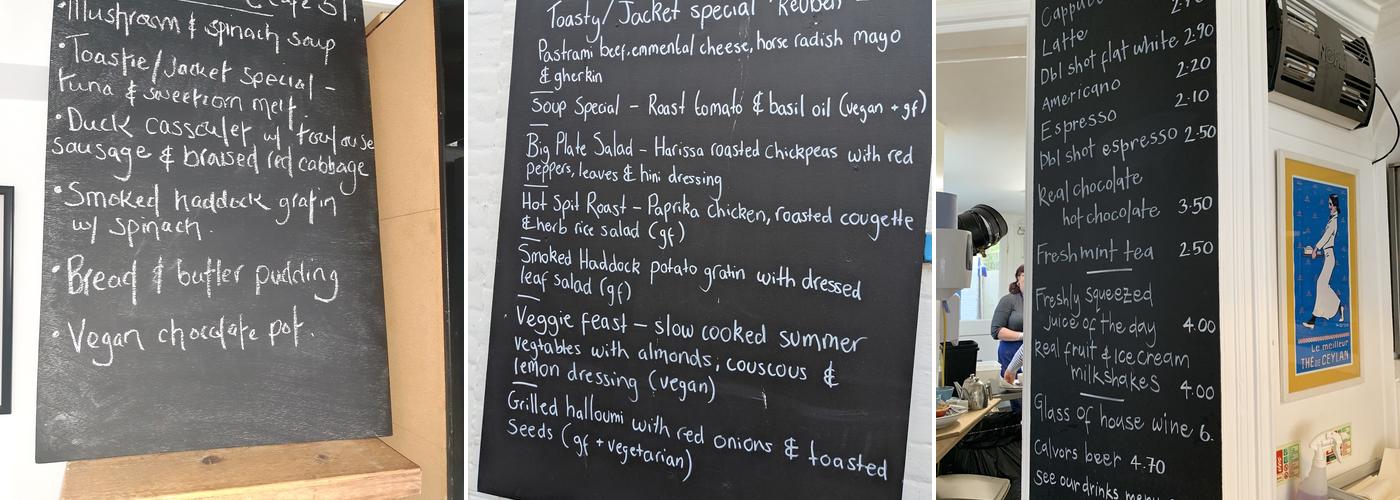 Mushroom & spinach soup
• Toastie/Jacket special -
tuna & sweetcorn melt.
• Duck cassoulet w/ toulouse
sausage & braised red cabbage
• Smoked haddock gratin
w/ spinach.
• Bread & butter pudding
• Vegan chocolate pot.
Toasty/Jacket special 'Reuben'
Pastrami beef, emmental cheese, horse radish mayo
& gherkin
Soup Special - Roast tomato & basil oil (vegan + gf)
Big Plate Salad - Harissa roasted chickpeas with red
peppers, leaves & hini dressing
Hot Spit Roast - Paprika chicken, roasted cougette
& herb rice salad (gf)
Smoked Haddock potato gratin with dressed
leaf salad (gf)
Veggie feast - slow cooked summer
vegtables with almonds, couscous &
lemon dressing (vegan)
Grilled halloumi with red onions & toasted
Seeds (gf + vegetarian)
Latte
Dbl shot flat white 2.90
Americano 2.20
Espresso 2.10
Dbl shot espresso 2.50
Real chocolate
hot chocolate 3.50
Fresh mint tea 2.50
Freshly squeezed
juice of the day 4.00
Real fruit & Ice cream
milkshakes 4.00
Glass of house wine 6.
Calvors beer 4.70
see our drinks menu
Le meilleur
THÉ DE CEYLAN